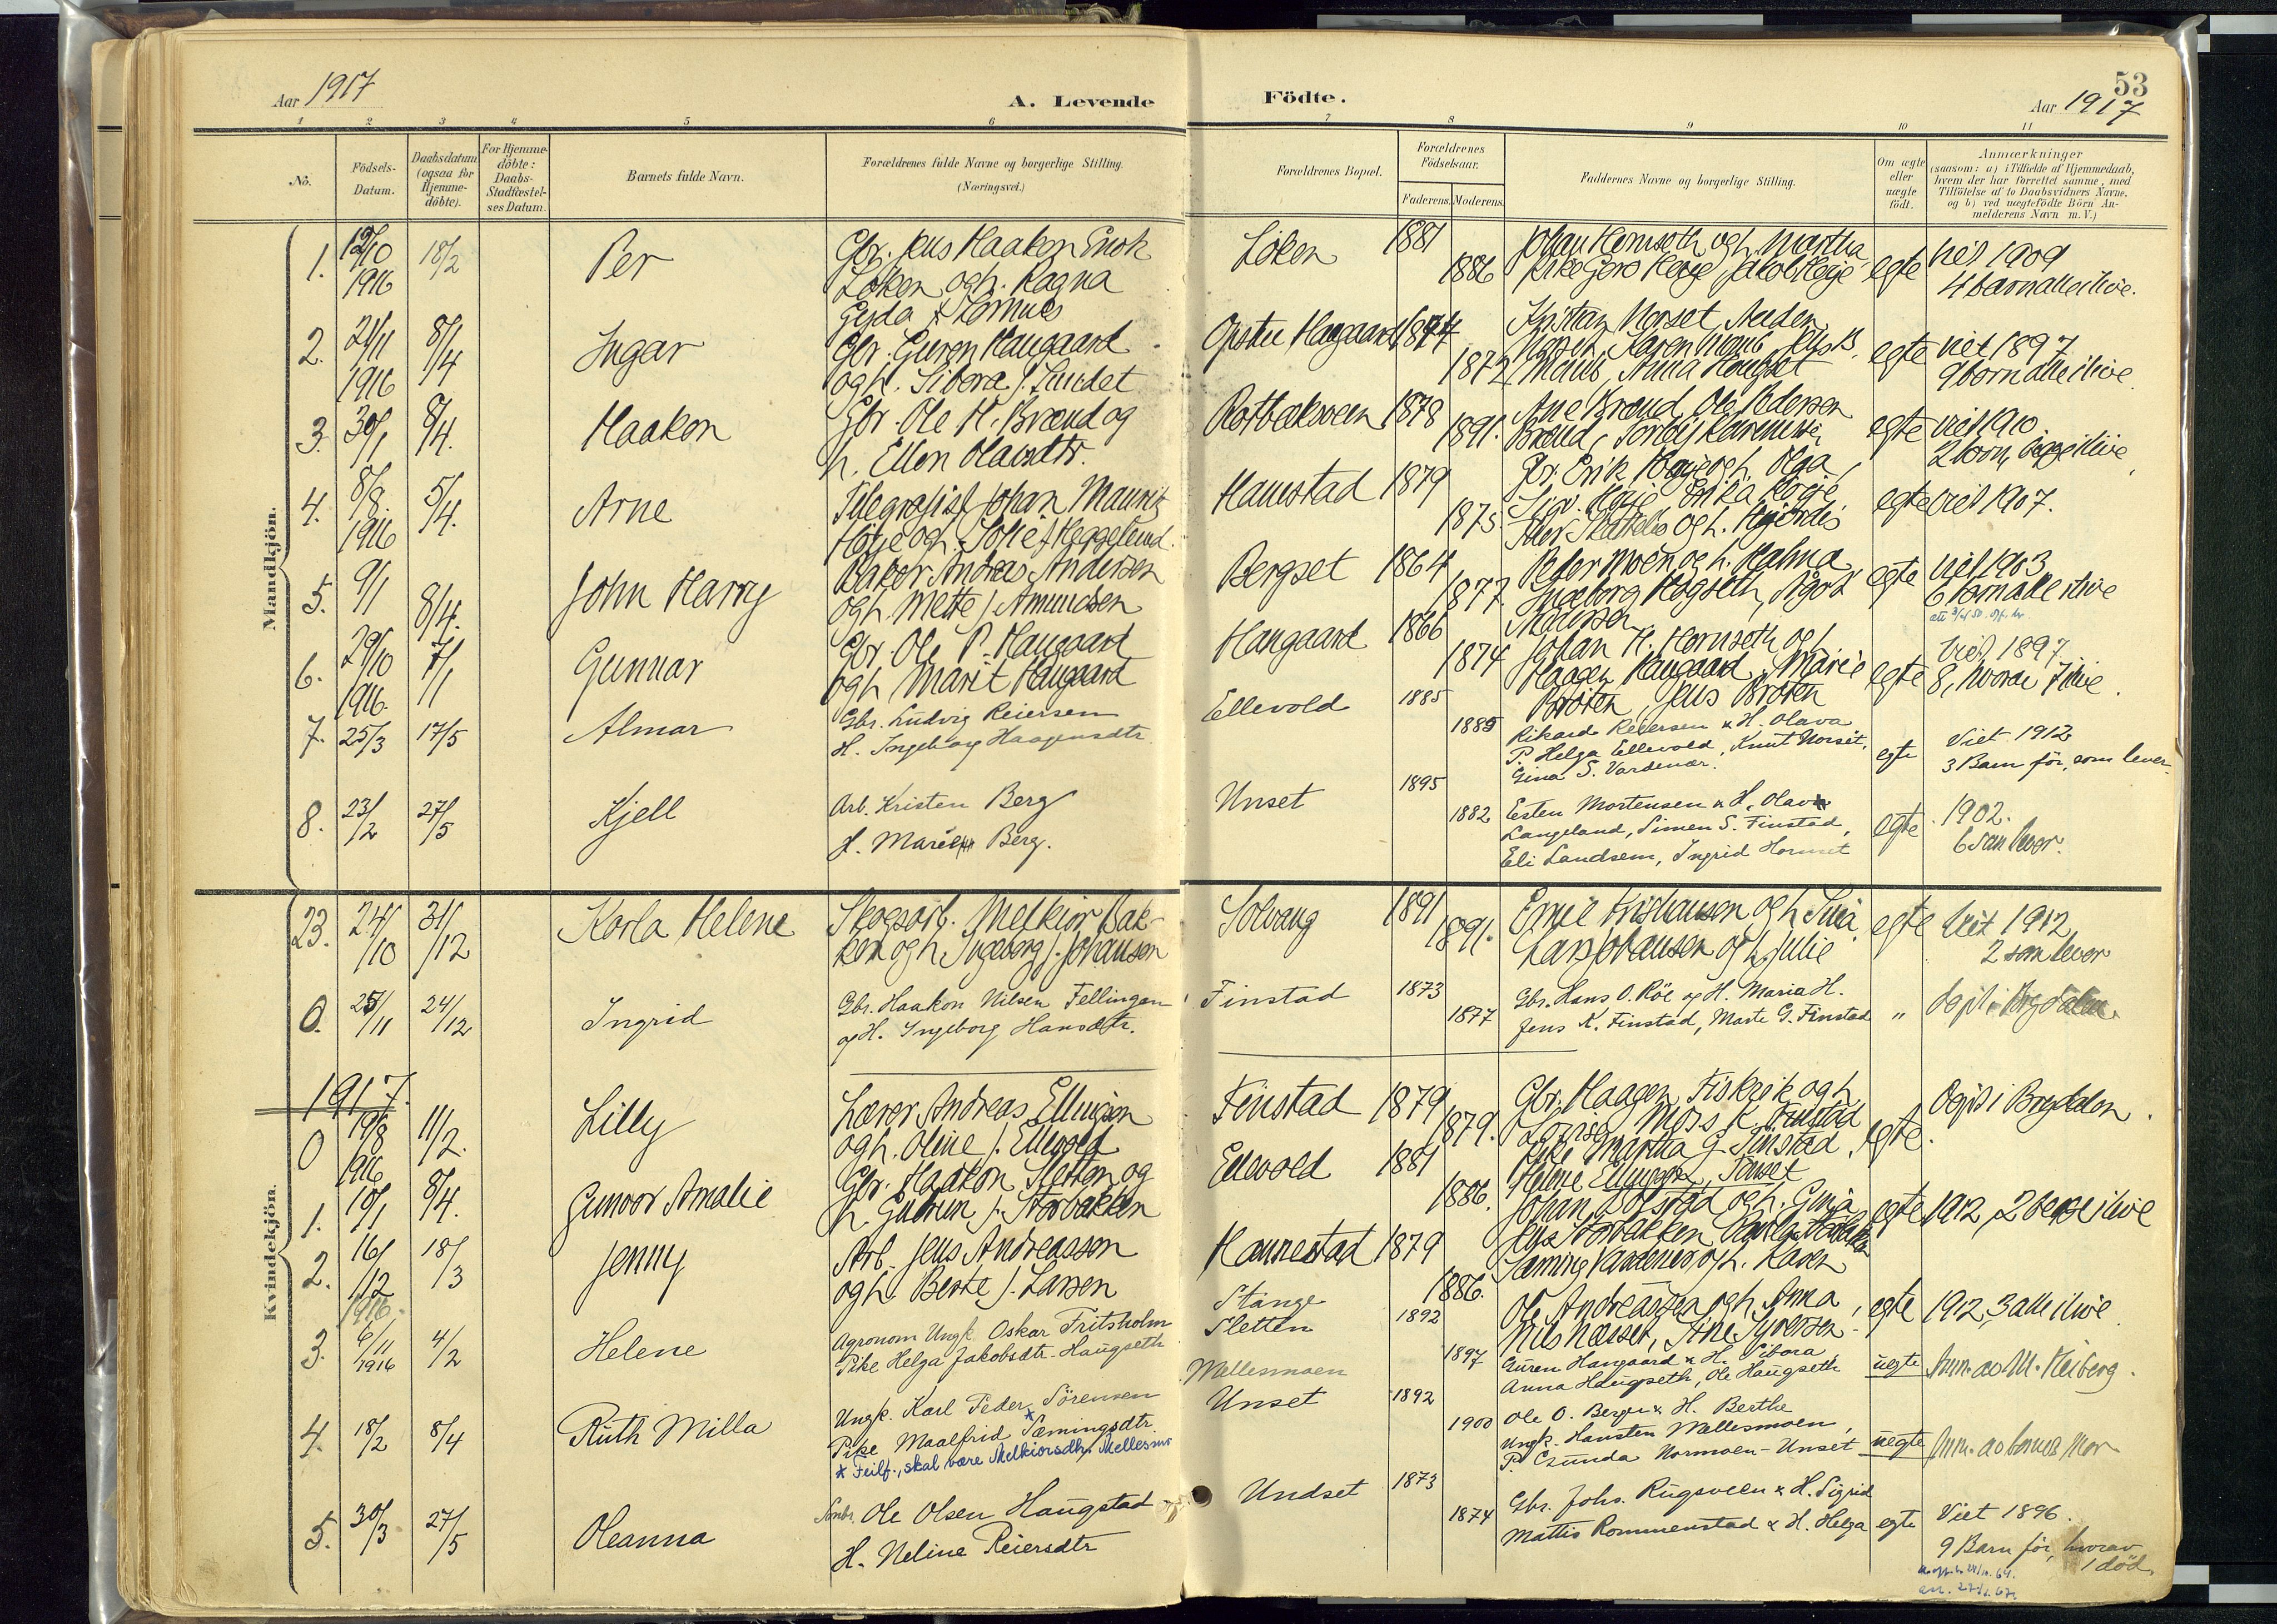 53
Aar 1917
A. Levende Födte.
Aar 1917
1 2 3 4 5 6 7 8 9 10 11
No.
Födsels-Datum.
Daabsdatum (ogsaa for Hjemme-döbte).
For Hjemme-döbte: Daabs-Stadfæstel-ses Datum.
Barnets fulde Navn.
Forældrenes fulde Navne og borgerlige Stilling.
(Næringsvei.)
Forældrenes Bopæl.
Forældrenes Födselsaar.
Faderens. Moderens.
Faddernes Navne og borgerlige Stilling.
Om ægte eller uægte födt.
Anmærkninger
(saasom: a) i Tilfælde af Hjemmedaab, hvem der har forrettet samme, med Tilföielse af to Daabsvidners Navne. og b) ved uægtefödte Börn Anmelderens Navn m. V.)
Mandkjön.
1. 12/10 1916 18/2 Per
Gbr. Jens Haakon Enok
Løken og h. Ragna
Gyda
Løken 1881 1886
Johan Hornseth og h. Martha
egte viet 1909
4 barn alle ilive.
2. 21/11 1916 8/4 Ingar
Gbr. Guren Haugaard
og h. Sibora f. Lundet
Opstu Haugaard 1874 1872
Kristian Norset
egte viet 1897
9 born alle ilive.
3. 30/1 8/4. Haakon
Gbr. Ole H. Brænd og
h. Ellen Olavsdtr.
Rotbækveen 1878 1891.
Ane Brænd, Ole Pedersen
Brænd,
egte viet 1910
2 born, begge ilive
4. 8/8. 1916 5/4. Arne
Telegrafist Johan Mauritz
Høye og h. Sofie f. Heggelund.
Hanestad 1879 1875
Gbr. Erik Høye og h. Olga
og h. Hjørdis
egte viet 1907.
5. 9/1 8/4. John Harry
Baker Andreas Andersen
og h. Mette f. Amundsen
Bergset 1864 1877
Peder Moen og h. Halma
Ingeborg Høgseth, Ågot
egte viet 1903
6 born alle ilive
6. 29/10 1916. 7/1 Gunnar
Gbr. Ole P. Haugaard
og h. Marit Haugaard
Haugaard 1866 1874
Johan H. Hornseth og h.
Haagen Haugaard, Marie
Bröten, Jens Bröten
egte viet 1897
8, hvorav 7 ilive.
7. 25/3 17/5 Almar
Gbr. Ludvig Reiersen
H. Ingeborg Haagensdtr.
Ellevold 1885 1885
Rikard Reiersen & H. Olava
P. Helga Ellevold, Knut Norset,
Gina S. Vardenær.
egte Viet 1912
3 Barn för, som lever.
8. 23/2 27/5 Kjell
Arb. Kristen Berg
H. Marie Berg.
Unset 1895 1882
Esten Mortensen & H. Olava
Langeland, Simen S. Finstad,
Eli Landsem, Ingrid Hornset
egte 1902.
6 som lever.
23. 24/10 31/12 Karla Helene
Skogsarb. Melkior Bak-
ken og h. Ingeborg f. Johansen
Solvang 1891 1891.
Lars Johansen og h. Julie
egte Viet 1912
2 som lever
0. 25/11 24/12 Ingrid
Gbr. Haakon Nilsen Fellingen
og H. Ingeborg Hansdtr.
Finstad 1873 1877
Gbr. Hans O. Röe og H. Maria H.
Jens K. Finstad, Marte G. Finstad
" døpt i Øvre Rendalen
1917.
Kvindekjön.
0 19/8 1916 11/2. Lilly
Lærer Andreas Ellingson
og h. Oline f. Ellevold
Finstad 1879 1879.
Gbr. Haagen Fiskvik og h.
Lovise, Moss K. Finstad
Pike Martha G. Finstad,
Helene Ellingsen, Tönset
egte. Døpt i
1. 10/1 8/4. Gunvor Amalie
Gbr. Haakon Sletten og
h. Gudrun f. Storbakken
Ellevold 1881 1886.
egte 1912, 2 begge ilive
2. 16/12 1916. 18/3 Jenny
Arb. Jens Andreasson
og h. Berte f. Larsen
Hannestad 1879 1886.
Sæming Vardenær og h. Karen
Ole Andreassen og h. Anna,
Nils Næsset, Stine Syversen.
egte 1912, 3 alle ilive
3. 6/11 1916 4/2 Helene
Agronom Ungk. Oskar Fritsholm
Pike Helga Jakobsdtr. Haugseth
Stange
Sletten 1892 1897
Guren Haugaard & H. Sibora,
Anna Haugseth, Ole Haugseth
uegte Anm. av M. Heiberg.
4. 18/2 8/4 Ruth Milla
Ungk. Karl Peder Sörensen
Pike Maalfrid * Sæmingsdtr.
* Feilf., skal være Melkiorsdtr. Mellesmo
Mellesmoen
Unset 1892 1900
Ole O. Berger & H. Berthe
Ungk. Hansten Mellesmoen,
P. Gunda Normoen-Unset
uegte Anm. av barnets Mor
5. 30/3 27/5 Oleanna
Smbr. Ole Olsen Haugstad
H. Neline Reiersdtr
Undset 1873 1874
Gbr. Johs. Rugsveen & H. Sigrid
Mattis Rommenstad & H. Helga
egte Viet 1896.
9 Barn för, hvorav
1 död.